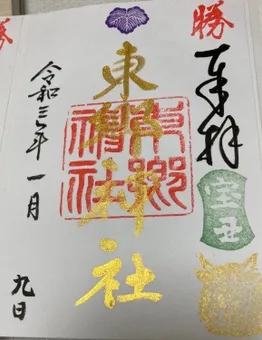 勝
奉拝
丑
東郷神社
東郷
神社
令和三年一月九日
勝